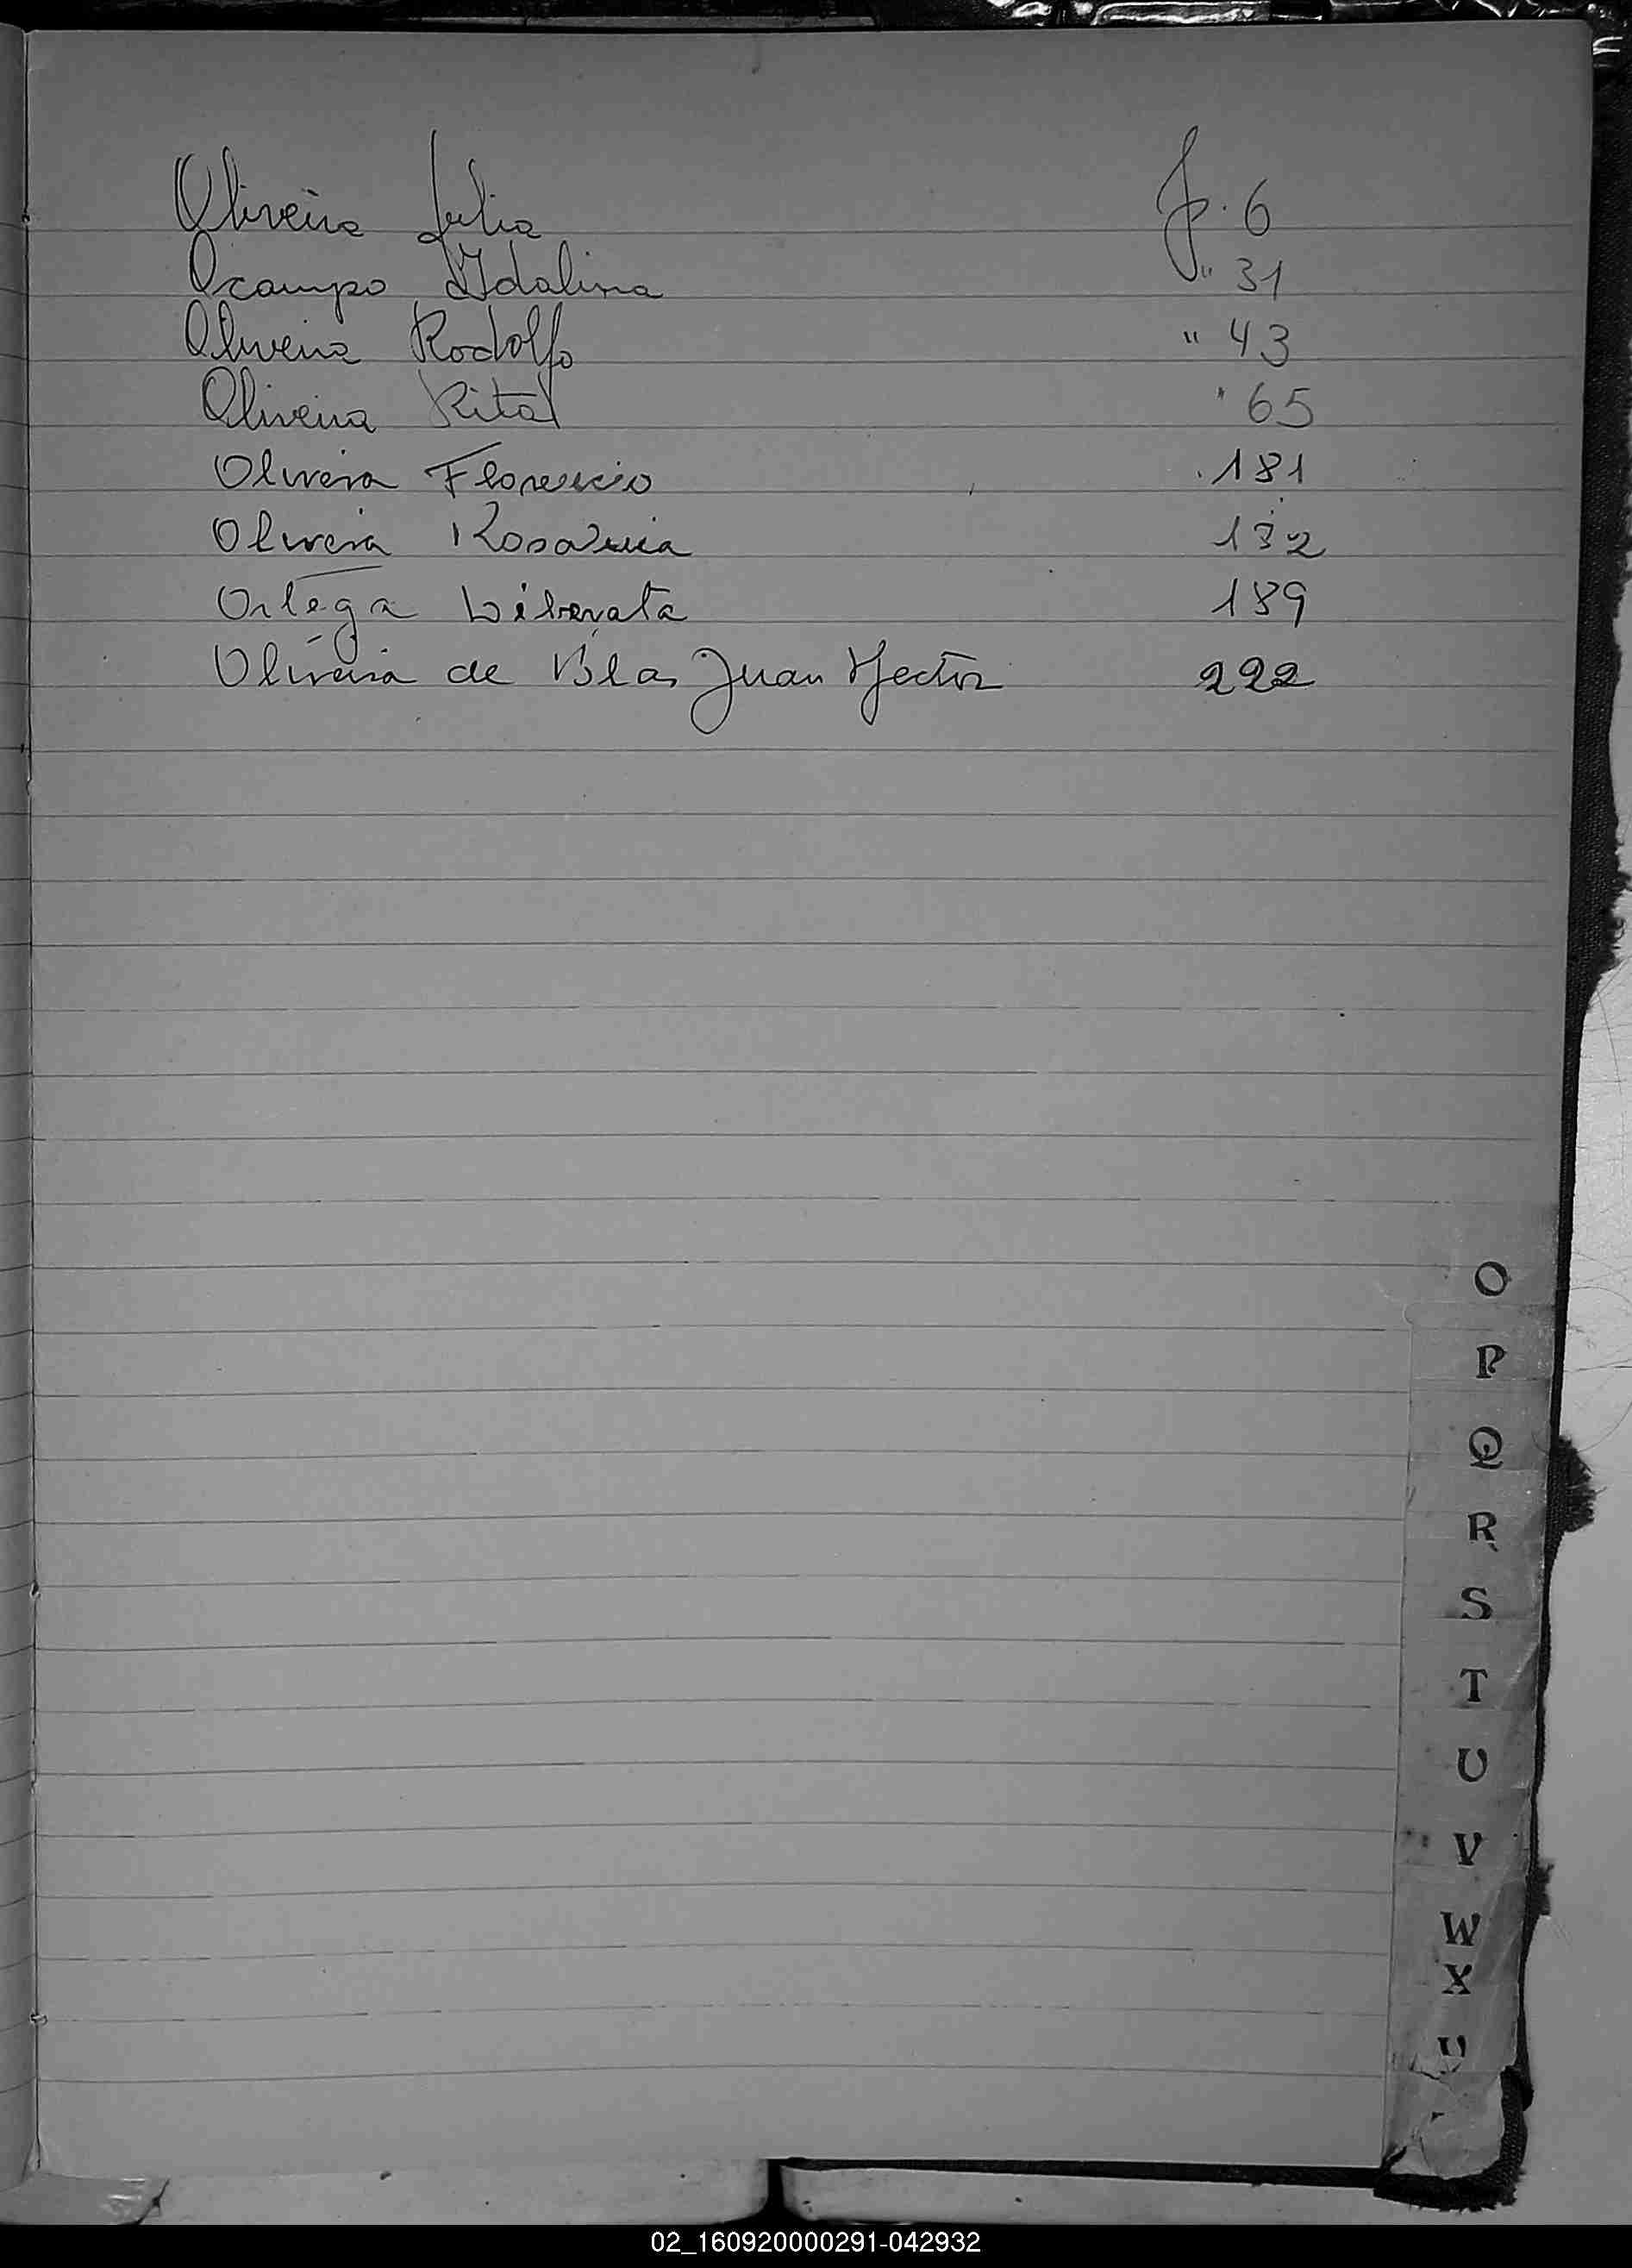 Oliveira Julia f. 6
Ocampo Idalina " 31
Oliveira Rodolfo " 43
Oliveira Rita " 65
Olivera Florencio 181
Olivera 132
Ortega Liberata 189
Oliveira de Blas Juan Hector 222
O
P
Q
R
S
T
U
V
W
X
02_160920000291-042932